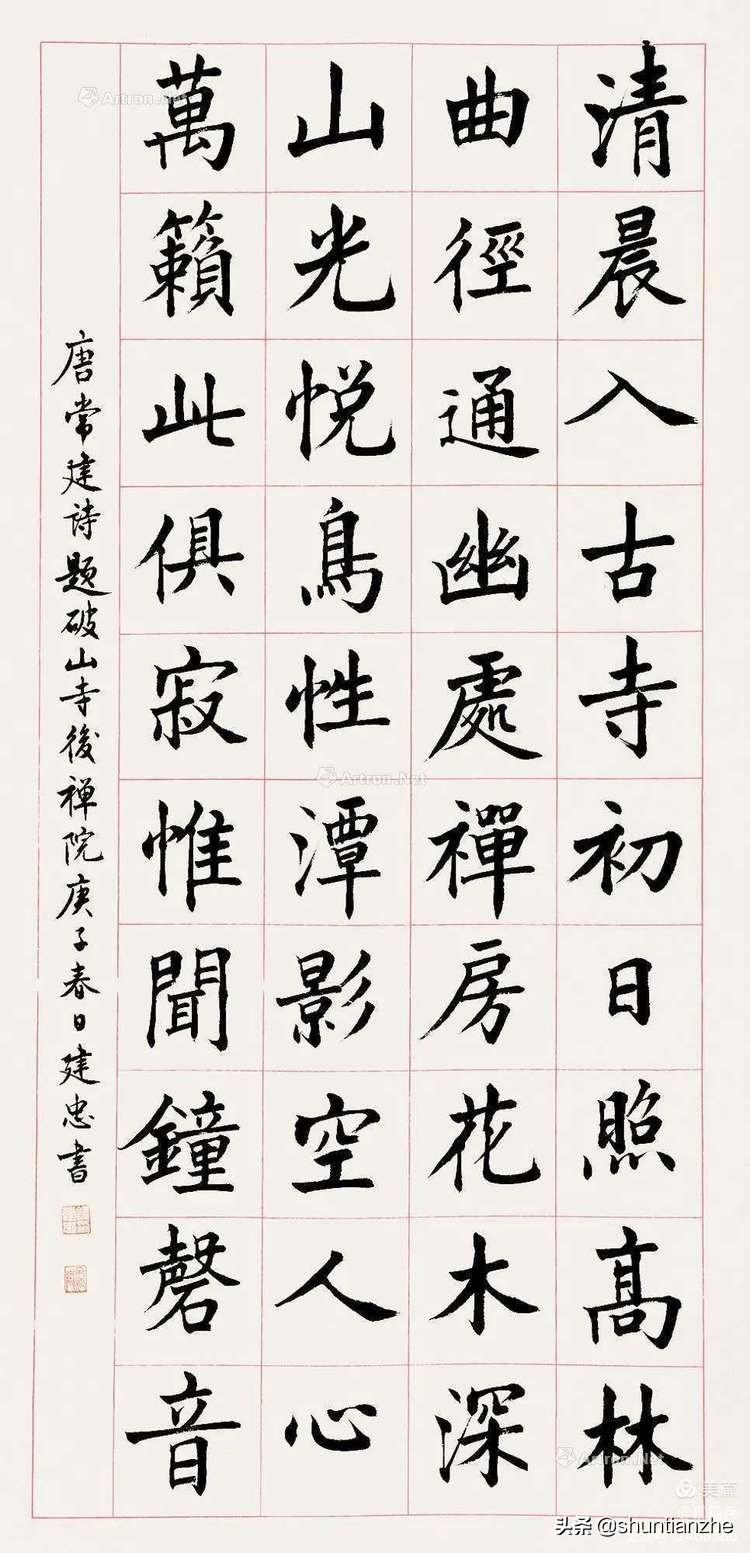 清晨入古寺初日照高林
曲徑通幽處禪房花木深
山光悅鳥性潭影空人心
萬籟此俱寂惟聞鐘磬音
唐常建詩題破山寺後禅院庚子春日建忠書
Artron.Net
Artron.Net
Artron.Net
美篇
头条 @shuntianzhe